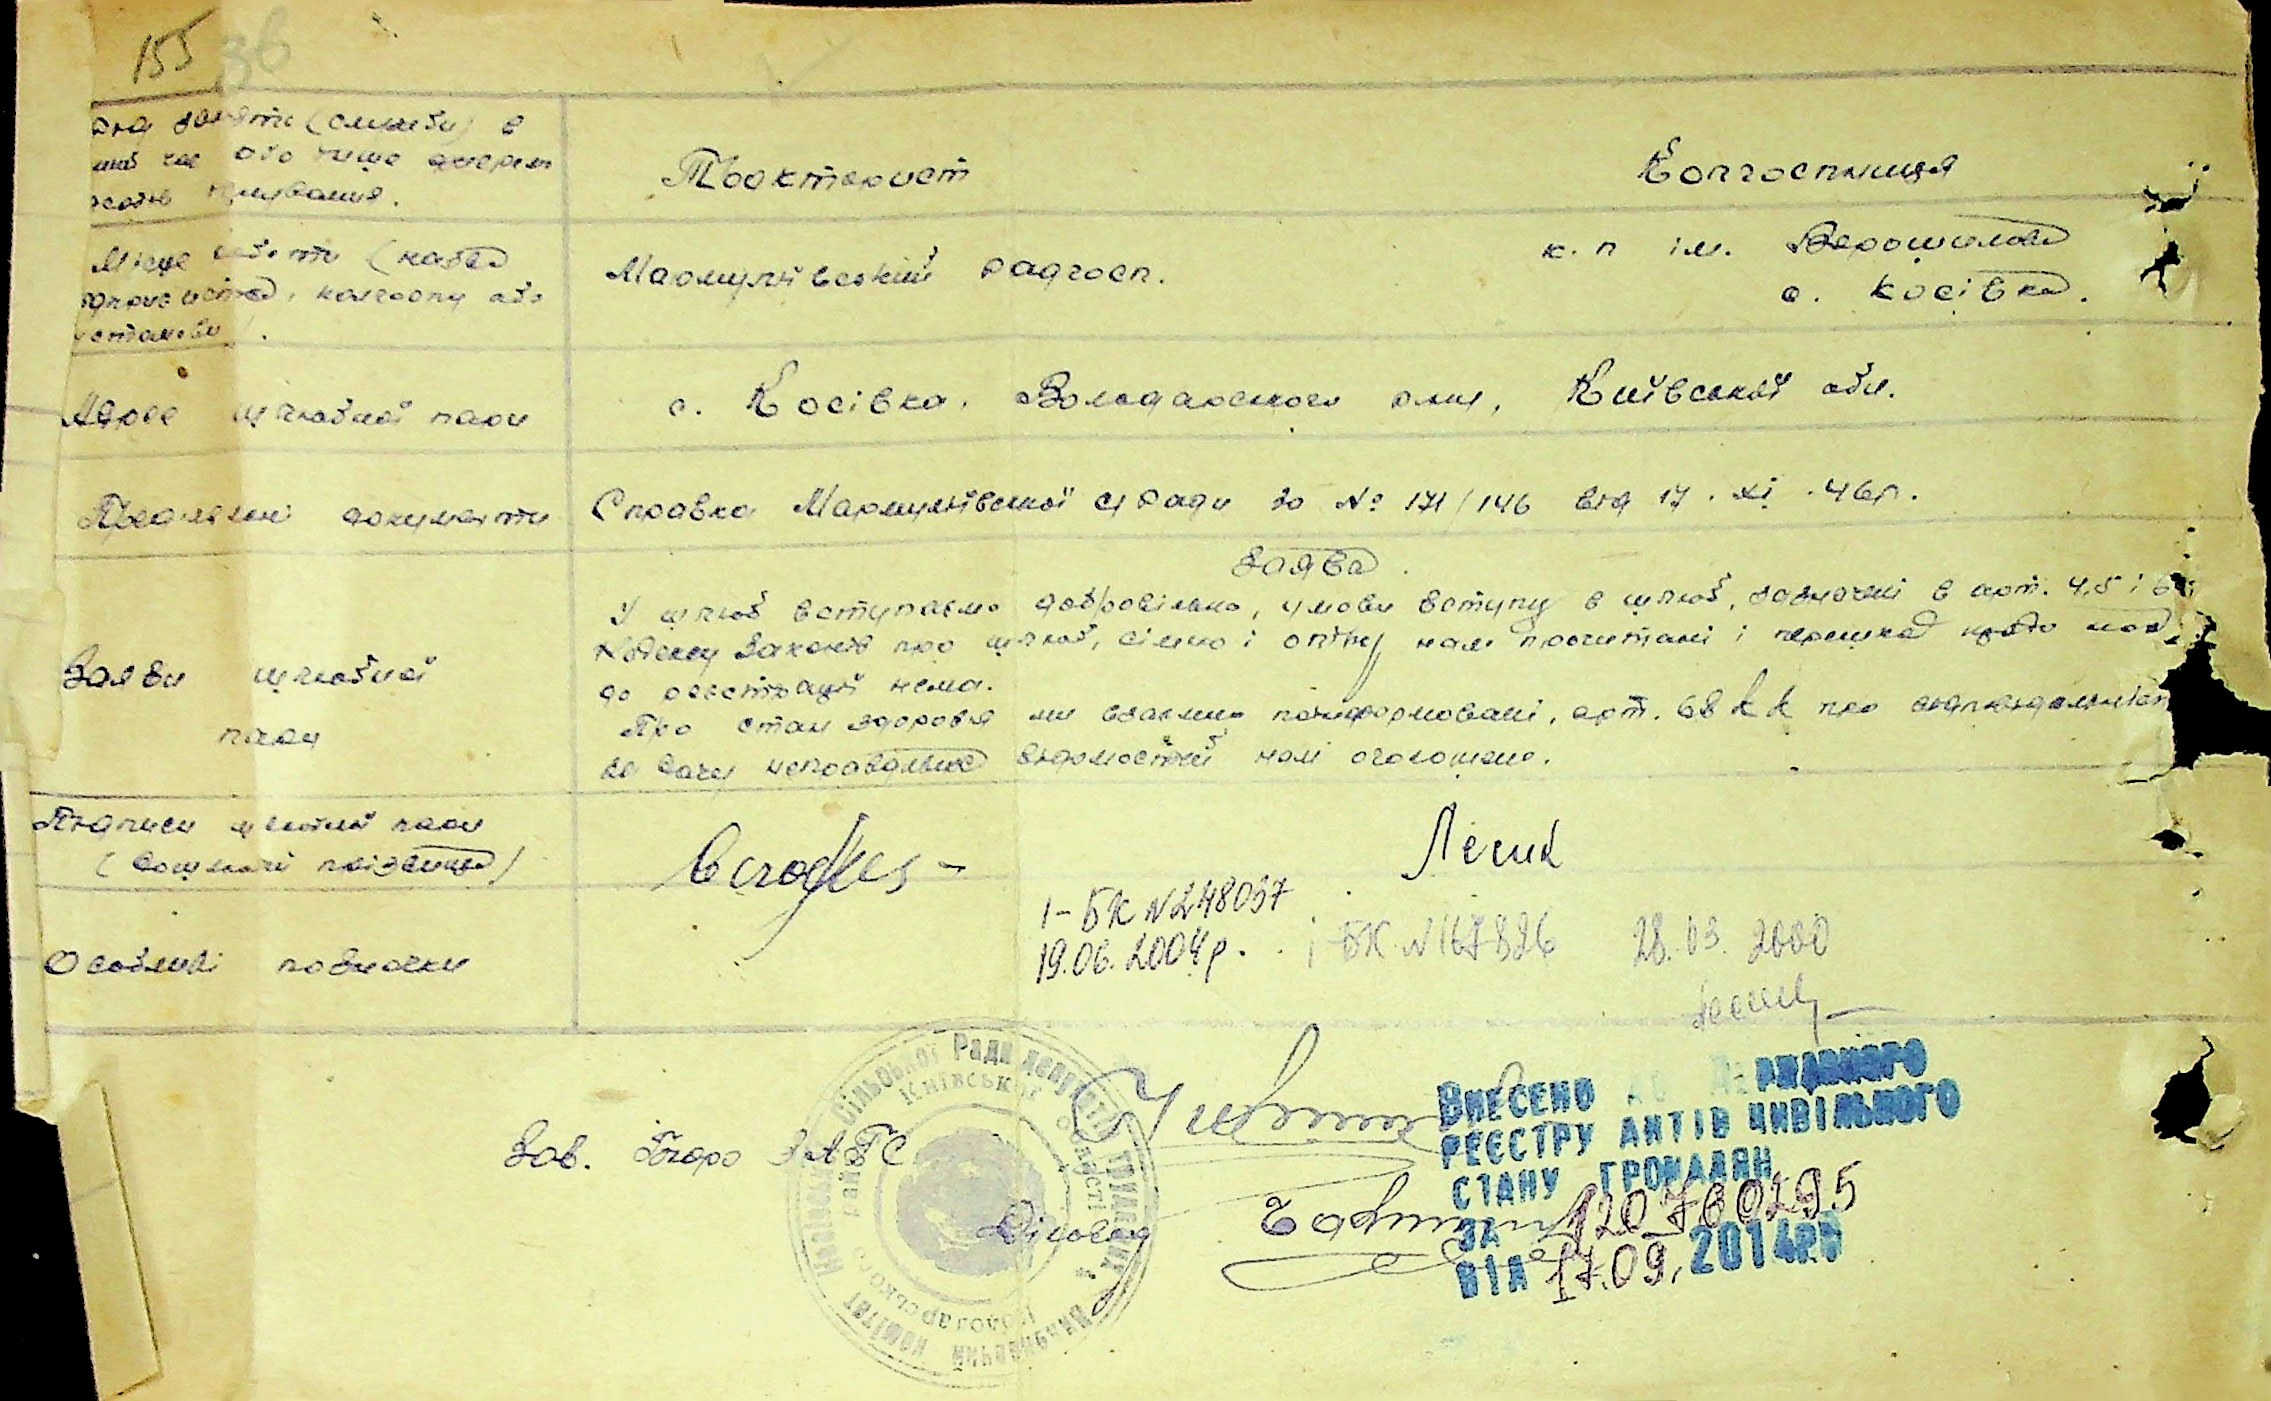 155 36
занять (служби) в
час або інше джерело
існування.
Тракторист
Колгоспниця
Місце роботи (назва
підприємства, колгоспу або
установи).
Мармуліївський радгосп.
к. п ім. Ворошилова
с. Косівка.
Адрес шлюбної пари
с. Косівка, Володарського р-ну, Київської обл.
Пред'явлені документи
Справка Мармуліївської с/ради за № 171/146 від 17. XI. 46р.
Заява.
Заяви шлюбної
пари
У шлюб вступаємо добровільно, умови вступу в шлюб, зазначені в арт. 4, 5 і 6
Кодексу Законів про шлюб, сімю і опіку нам прочитані і перешкод
до реєстрації нема.
Про стан здоровя ми взаємно поінформовані, арт. 68 К К про відповідальність
за дачу неправдивих відомостей нам оголошено.
Підписи шлюбної пари
(дошлюбні прізвища)
Лесик
Особливі позначки
І-БК №248037
19.06.2004р.
І-БК №167826 28.03.2000
Зав. Бюро ЗАГС
Діловод
Сільської Ради депутатів трудящих
Виконавчий комітет
Володарського району
Київської області
Внесено до Державного
реєстру актів цивільного
стану громадян
за 120760295
від 17.09.2014р